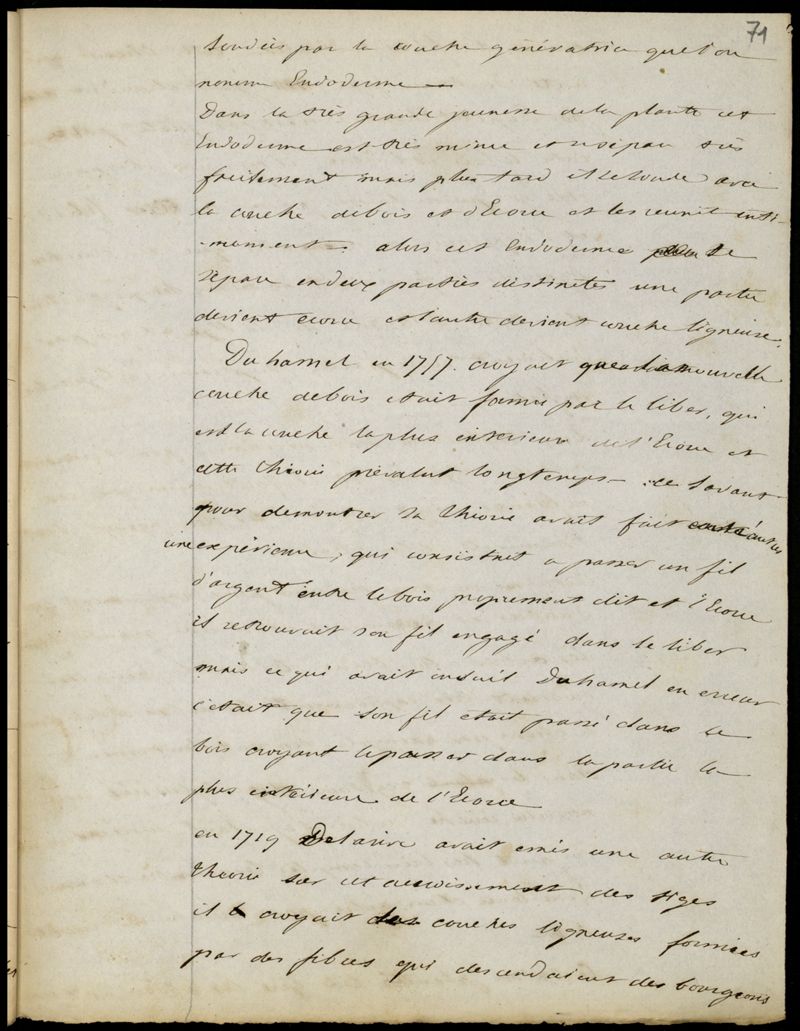 71
soudées par la couche génératrice que l'on
nomme Endoderme —
Dans la très grande jeunesse de la plante cet
Endoderme est très mince et se sépare très
facilement mais plus tard il se soude avec
la couche de bois et d'Ecorce et les reunit inti-
-mement - alors cet Endoderme se
separe en deux parties distinctes une partie
devient ecorce et l'autre devient couche ligneuse.
Duhamel en 1757. croyait que la nouvelle
couche de bois etait formée par le liber, qui
est la couche la plus interieure de l'Ecorce et
cette théorie prévalut longtemps - ce savant
pour demontrer sa théorie avait fait
une expérience, qui consistait a passer un fil
d'argent entre le bois proprement dit et l'Ecorce
il retrouvait son fil engagé dans le liber
mais ce qui avait induit Duhamel en erreur
c'etait que son fil etait passé dans le
bois croyant le passer dans la partie la
plus interieure de l'Ecorce
en 1719 Delahire avait emis une autre
théorie sur cet accroissement des tiges
il croyait les couches ligneuses formées
par des fibres qui descendaient des bourgeons